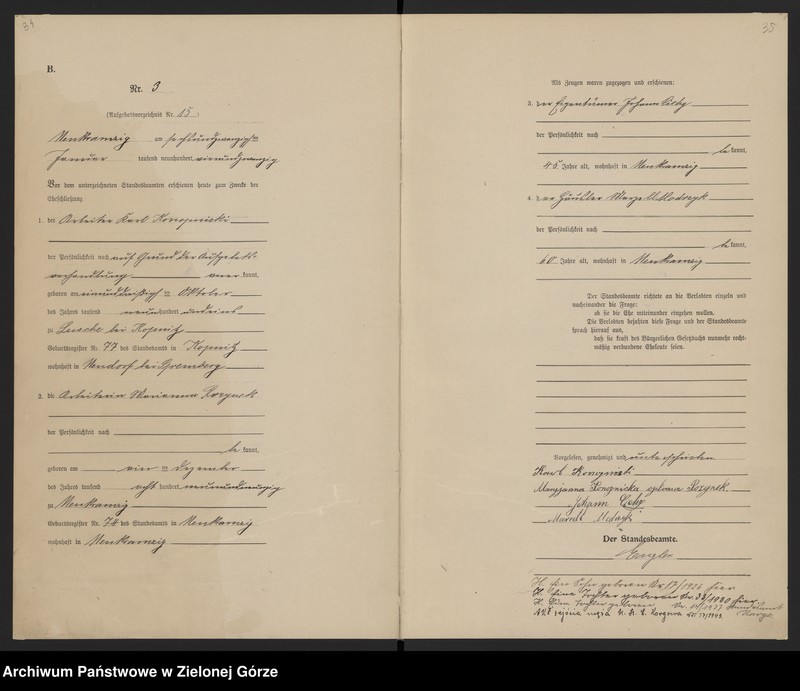 34
B.
Nr. 3
(Aufgebotsverzeichnis Nr. 15)
Neukramzig am sechsundzwanzigsten
Januar tausend neunhundert vierundzwanzig
Vor dem unterzeichneten Standesbeamten erschienen heute zum Zwecke der
Eheschließung:
1. der Arbeiter Karl Konopnicki
der Persönlichkeit nach auf Grund der Aufgebots-
verhandlung anerkannt,
geboren am einunddreißigsten Oktober
des Jahres tausend neunhundert undeins
zu Lusche bei Kopnitz
Geburtsregister Nr. 77 des Standesamts in Kopnitz
wohnhaft in Neudorf bei
2. die Arbeiterin Marianna Rozynek
der Persönlichkeit nach
bekannt,
geboren am vier ten Dezember
des Jahres tausend acht hundert neunundneunzig
zu Neukramzig
Geburtsregister Nr. 78 des Standesamts in Neukramzig
wohnhaft in Neukramzig
35
Als Zeugen waren zugezogen und erschienen:
3. der Eigentümer Johann Cichy
der Persönlichkeit nach
bekannt,
45 Jahre alt, wohnhaft in Neukramzig
4. der Häusler
der Persönlichkeit nach
bekannt,
60 Jahre alt, wohnhaft in Neukramzig
Der Standesbeamte richtete an die Verlobten einzeln und
nacheinander die Frage:
ob sie die Ehe miteinander eingehen wollen.
Die Verlobten bejahten diese Frage und der Standesbeamte
sprach hierauf aus,
daß sie kraft des Bürgerlichen Gesetzbuchs nunmehr recht-
mäßig verbundene Eheleute seien.
Vorgelesen, genehmigt und unterschrieben
Karl Konopnicki
Maryjanna Konopnicka geborene Rozynek
Johann Cichy
Der Standesbeamte.
Engler
H. Ein Sohn geboren Nr. 17/1926 hier
H. Eine Tochter geboren Nr. 32/1930 hier
H. Eine Tochter geboren Nr. 14/1937 Standesamt
Karge
Archiwum Państwowe w Zielonej Górze